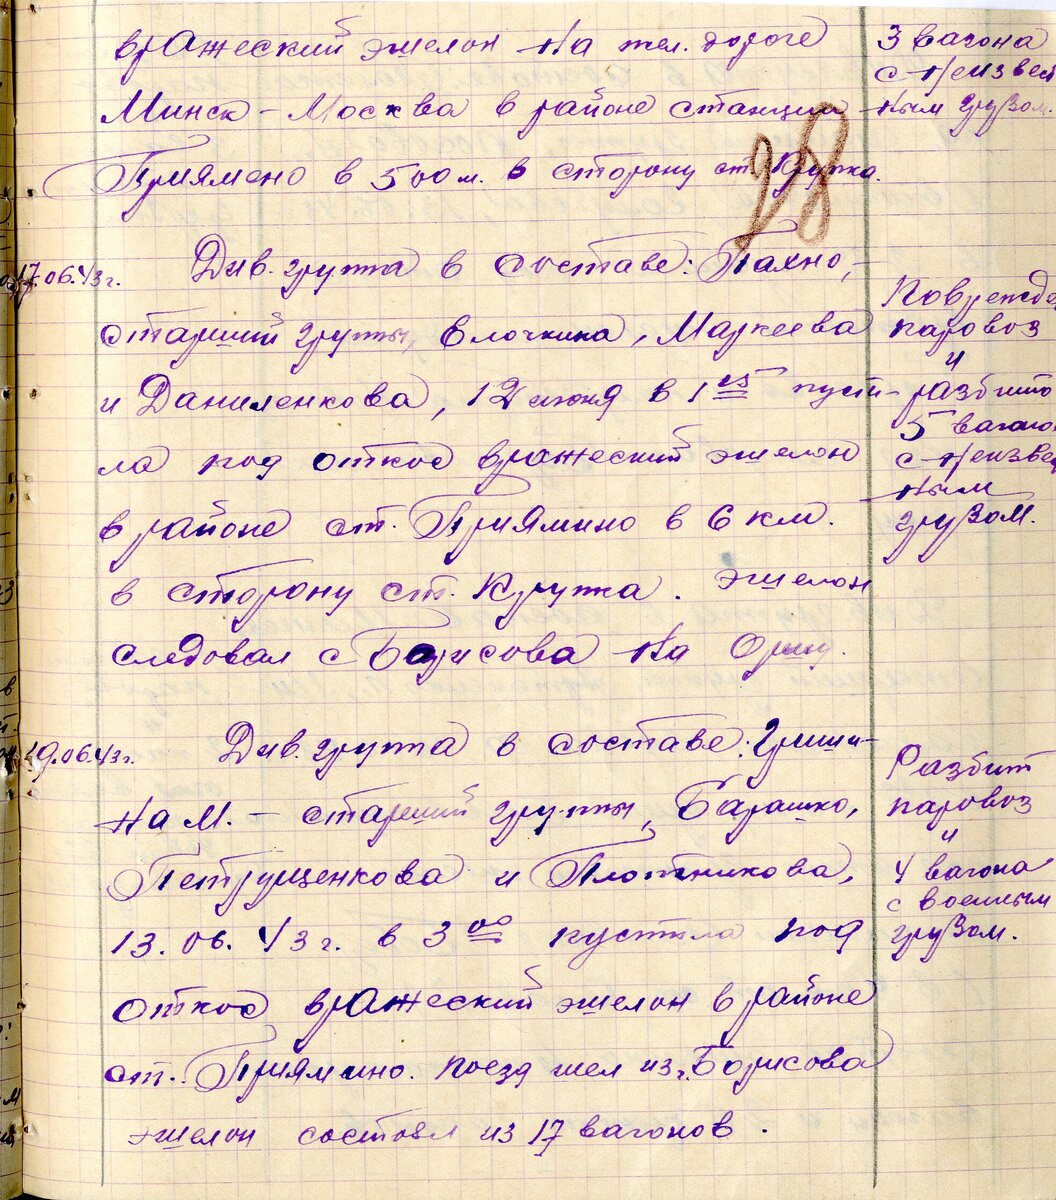 вражеский эшелон на жел. дороге
Минск – Москва в районе станции
Приямено в 500 м. в сторону ст. Крупка.
3 вагона
с неизвест
ным грузом.
28
17.06.43 г.
Див. группа в составе: Пахно, –
старший группы, Елочкина, Маркеева
и Даниленкова, 12 июня в 1 25 пусти-
ла под откос вражеский эшелон
в районе ст. Приямино в 6 км.
в сторону ст. Крупка. эшелон
следовал с Борисова на Оршу.
Поврежде
паровоз
и
разбито
5 вагоно
с неизвес
ным
грузом.
19.06.43 г.
Див. группа в составе: Гриши-
на М. – старший группы, Барашко,
Петрущенкова и Плотникова,
13.06.43 г. в 3 00 пустила под
откос вражеский эшелон в районе
ст. Приямино. поезд шел из г. Борисова
эшелон состоял из 17 вагонов.
Разбит
паровоз
и
4 вагона
с военным
грузом.